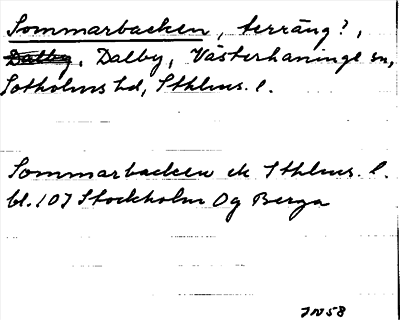 Sommarbacken, terräng?,
Dalby, Dalby, Västerhaninge sn,
Sotholms hd, Sthlms. l.
Sommarbacken ek Sthlms. l.
bl. 107 Stockholm Og Berga
JN58